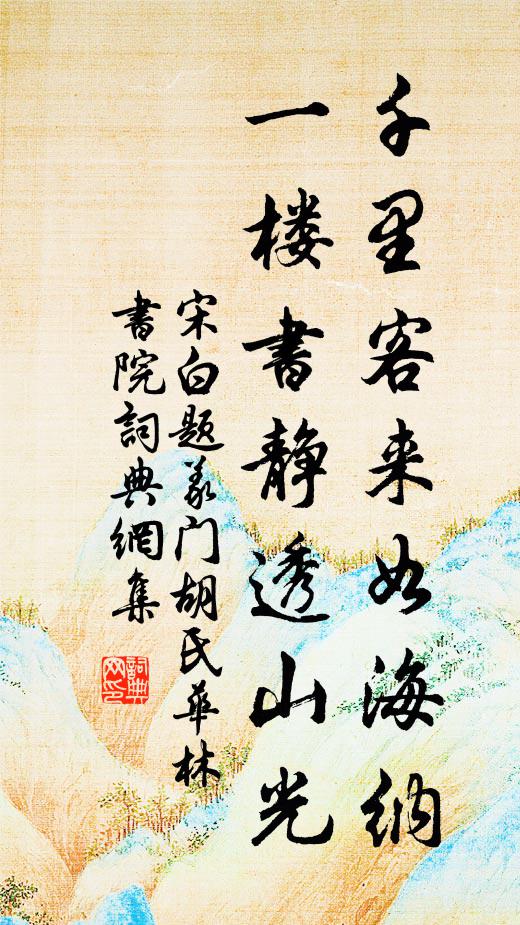 千里客来如海纳
一楼書静透山光
宋白题义门胡氏华林
書院詞典網集
詞典網印